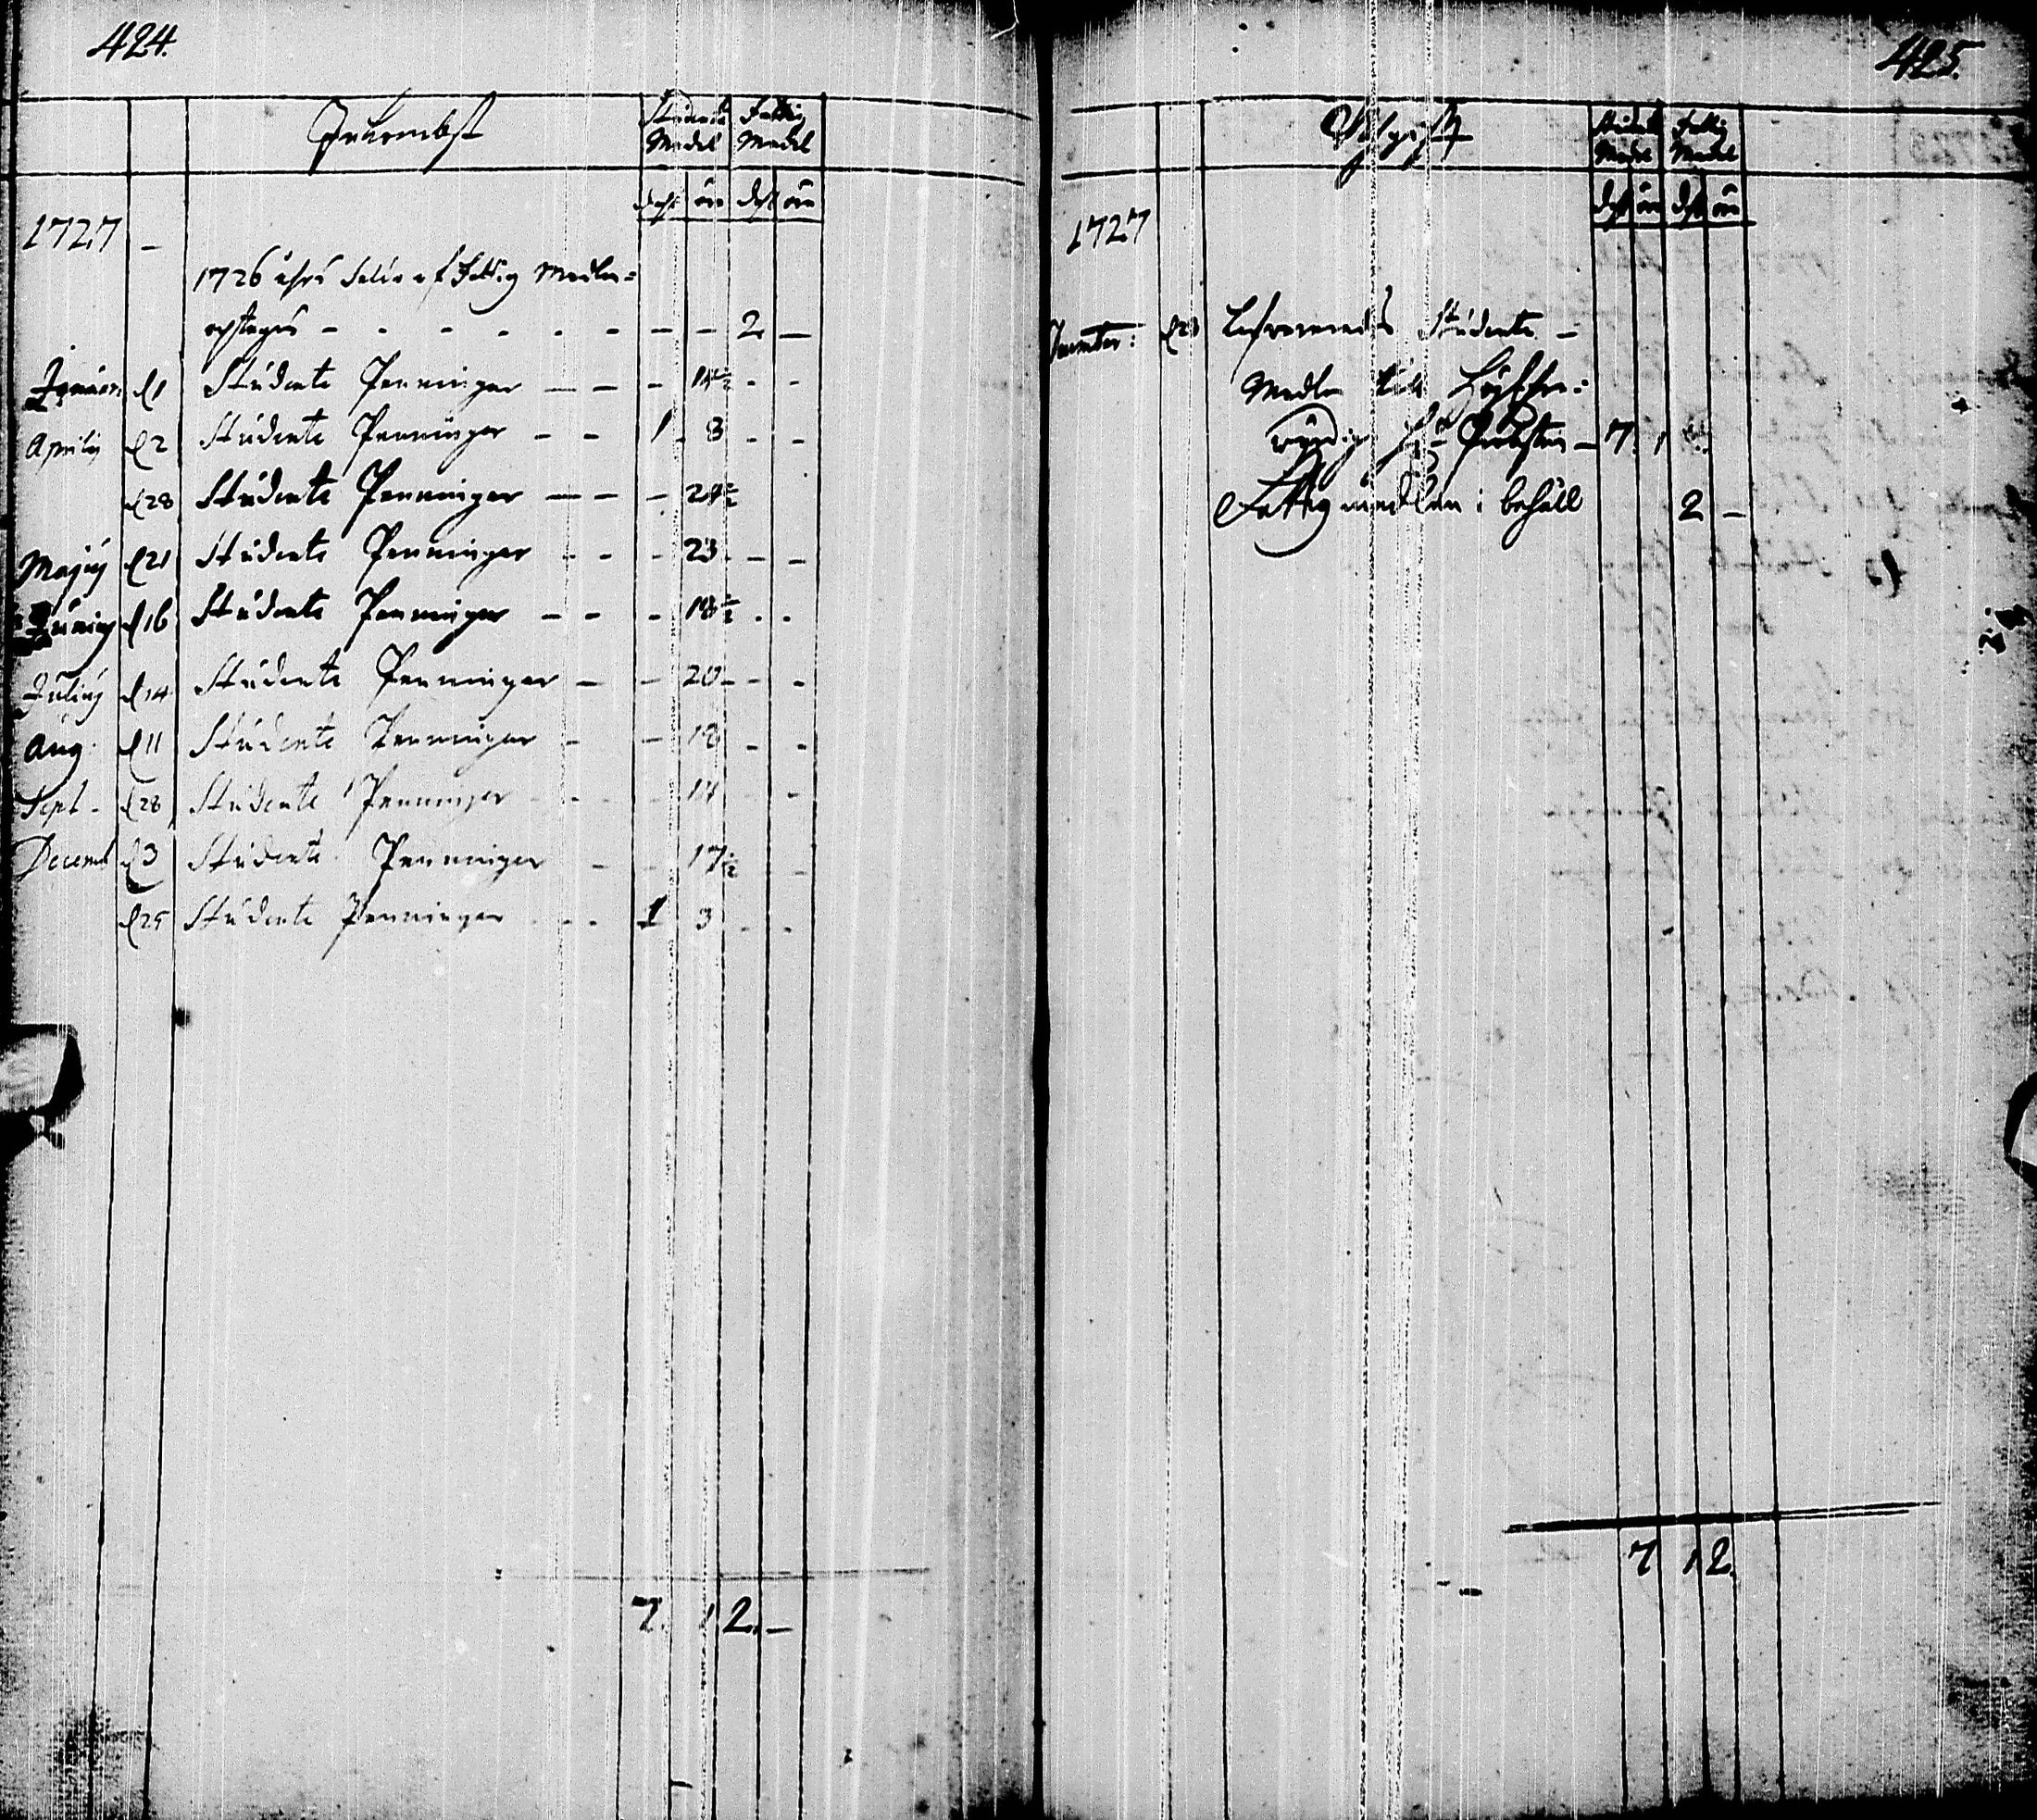 424.
Inkombst
Studente Medel
Fattig Medel
dahl
öre
dahl
öre
1727 -
1726 åhrs Saldo af Fattig Medlen=
optages - - - - - - - - 2 -
Januar. d 1 Studente Penningar - - - 14½ - -
Aprilij d 2 Studente Penningar - - 1 8 - -
d 28 Studente Penningar - - - 24½
Majus d 21 Studente Penningar - - - 23 - -
Junius d 16 Studente Penningar - - - 18½ - -
Julius d 14 Studente Penningar - - 20 - -
Aug: d 11 Studente Penningar - - 18 - -
Sept - d 28 Studente Penningar - - - 14 - -
Decemb d 3 Studente Penningar - - 17½ - -
d 25 Studente Penningar - - 1 3 - -
7. 1 2. -
425.
Uthgifft
Student Medel
Fattig Medel
dahl
öre
dahl
öre
1727
December: d 28 Lefvererades Studente -
Medlen till Högährе=
vördige H:r Probsten - 7. 1
Fattig medlen i behåll 2 -
7 1 2.